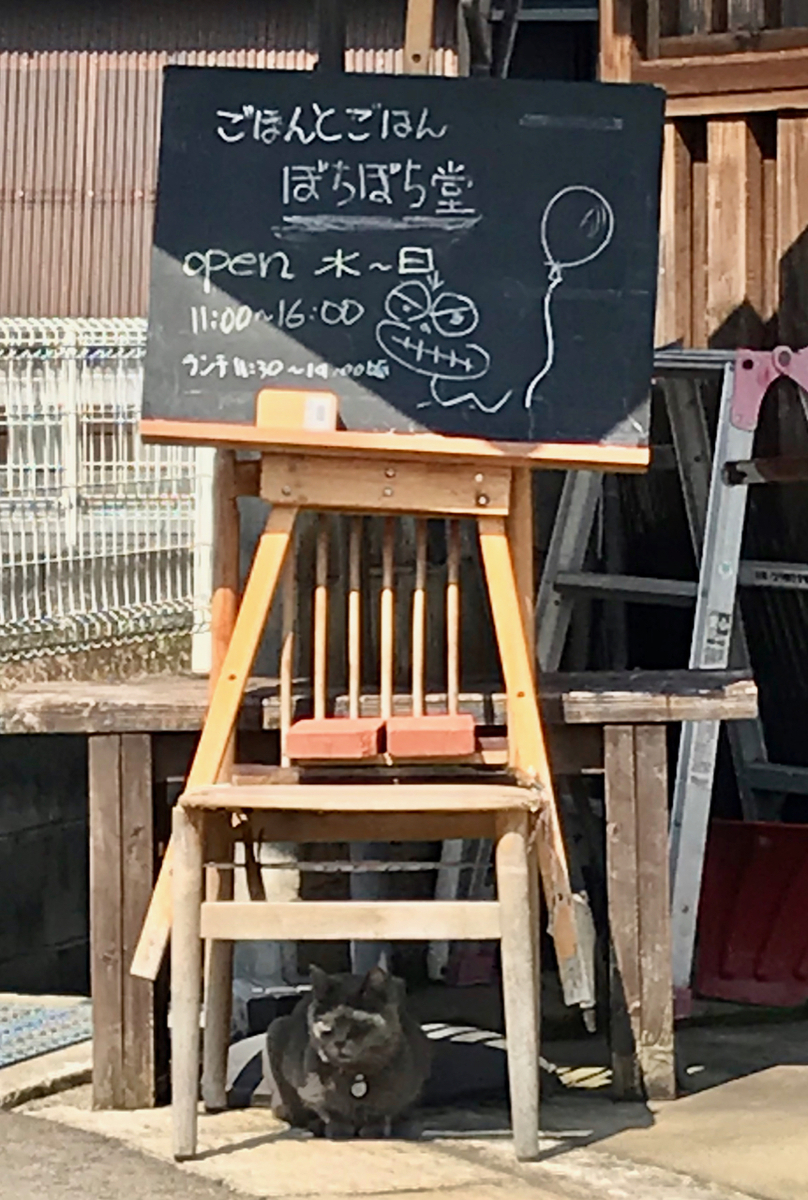 ごほんとごはん
ぼちぼち堂
open 水~日
11:00~16:00
ランチ 11:30~14:00